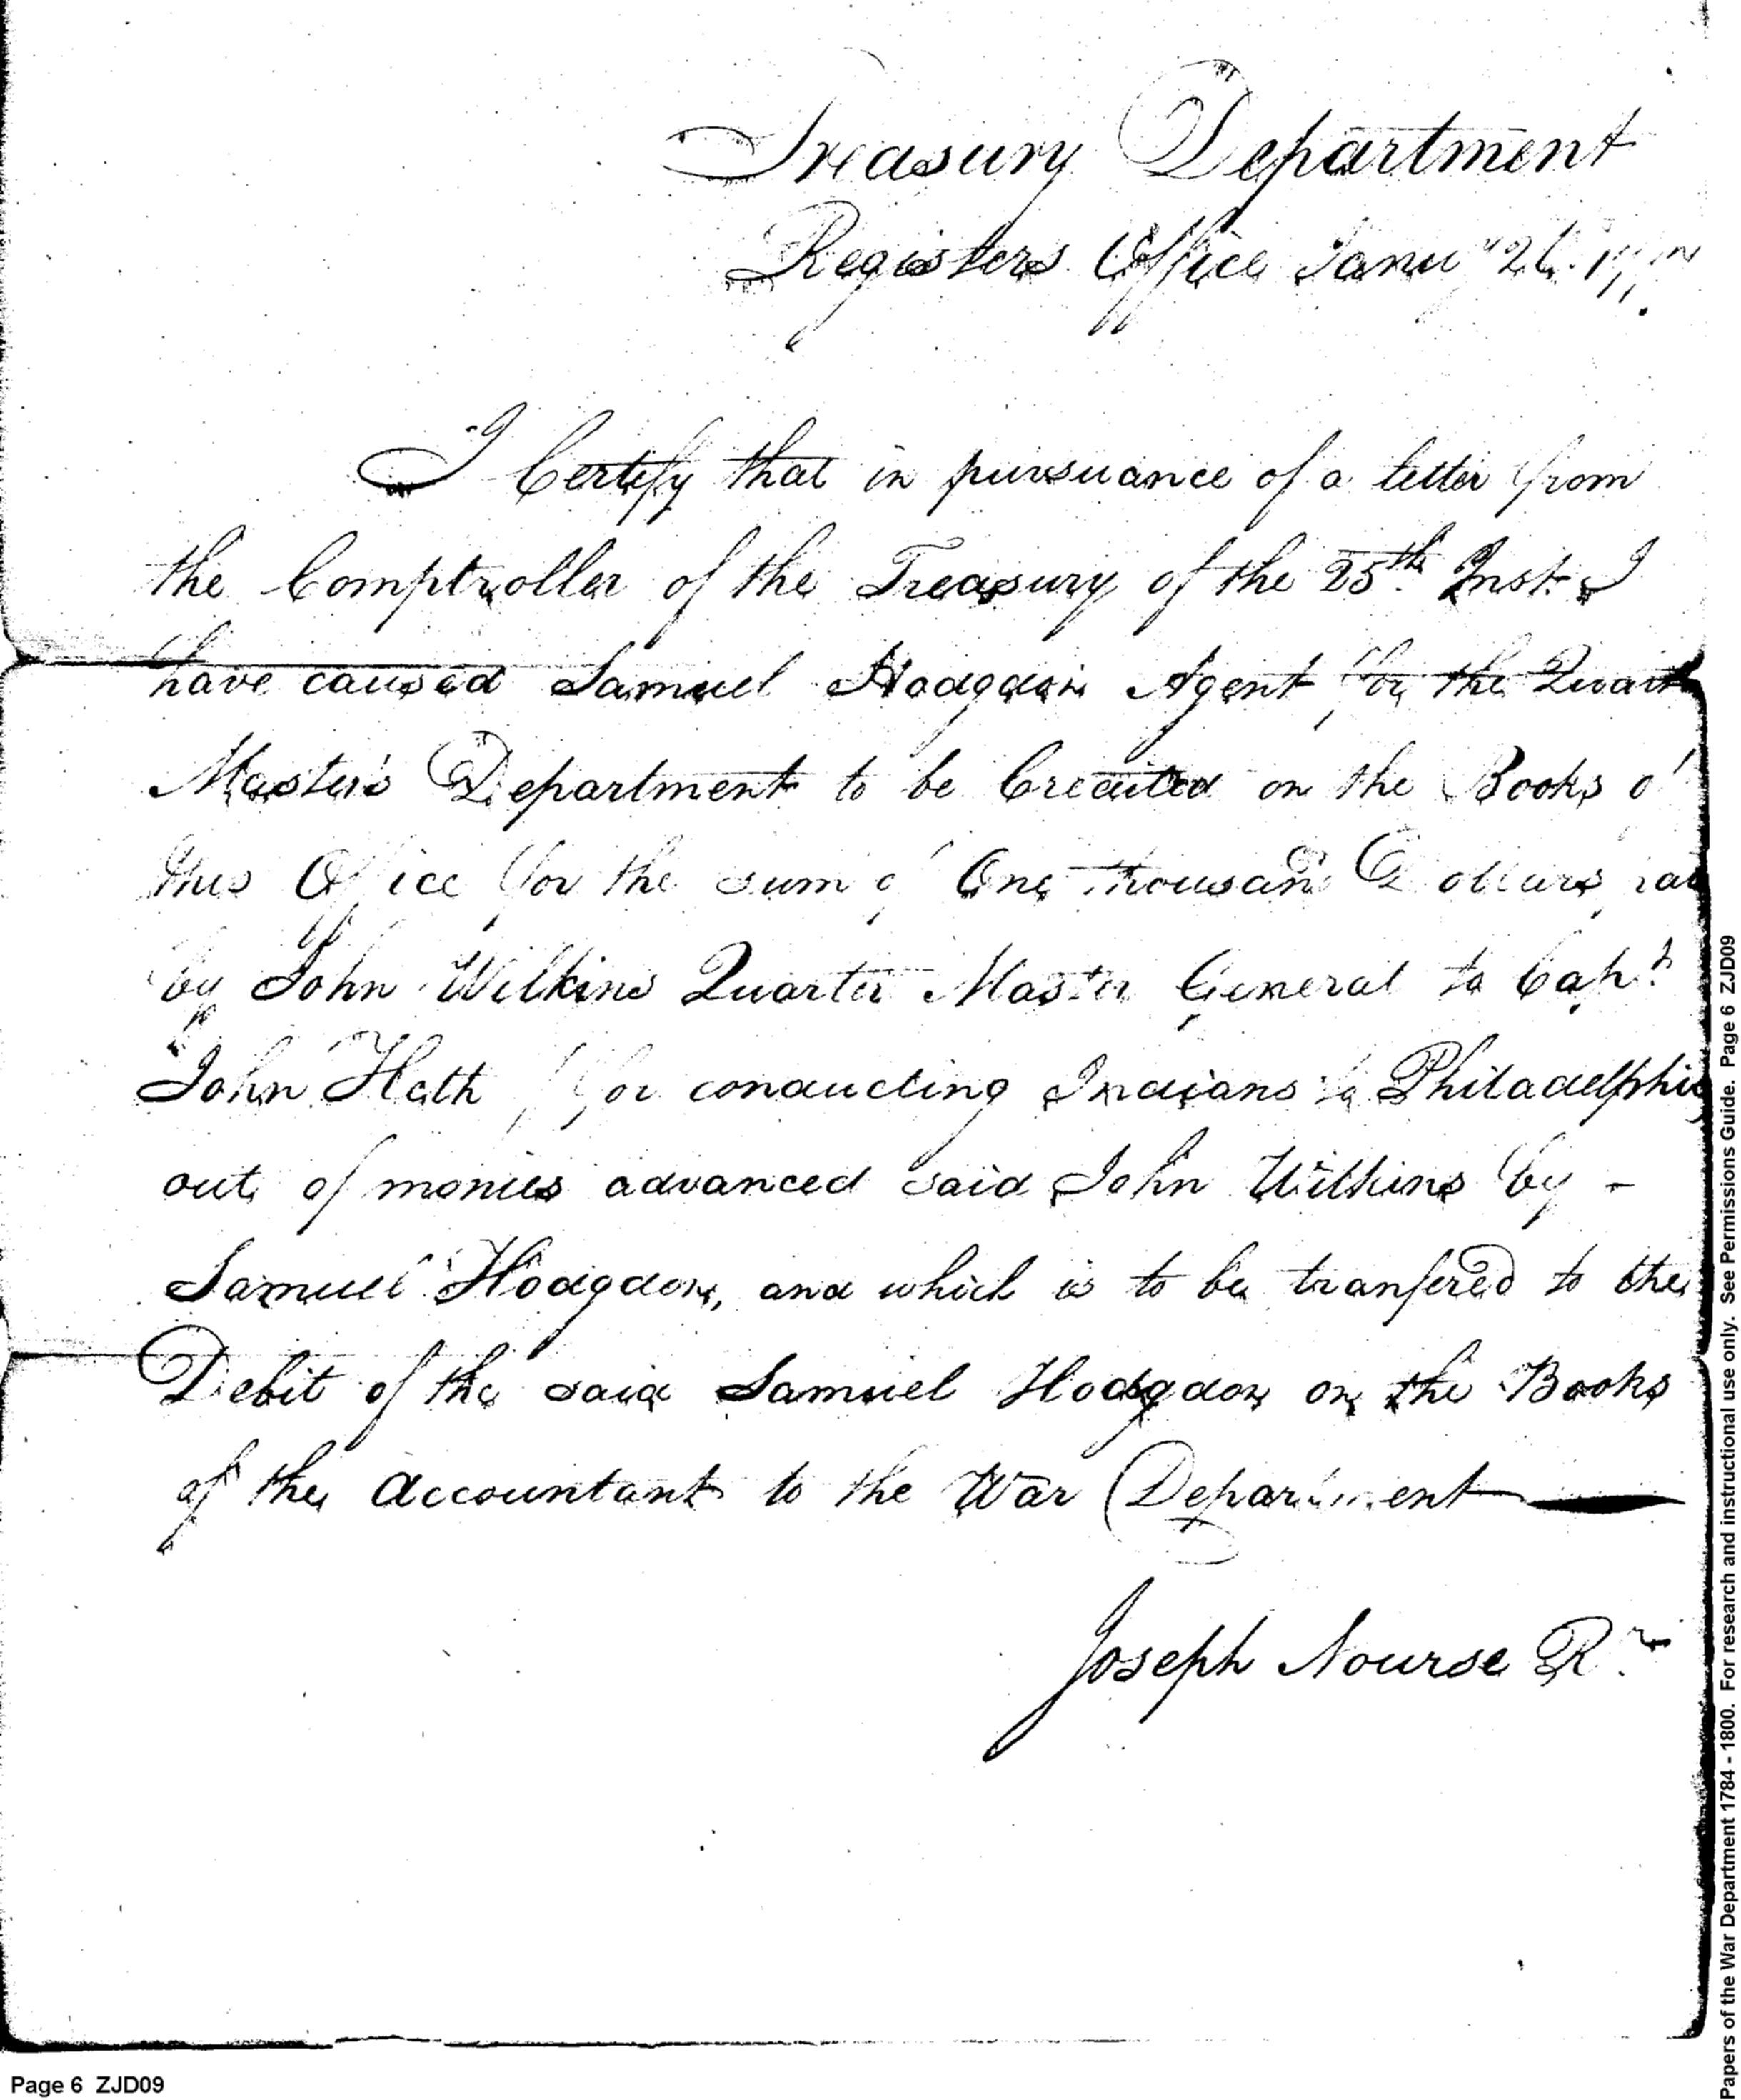 Treasury Department
Registers Office Janu<sup>y</sup> 26.
I Certify that in pursuance of a letter from
the Comptroller of the Treasury of the 25<sup>th</sup>. Inst. I
have caused Samuel Hodgdon Agent for the Quart
Master's Department to be Credited on the Books of
this Office for the sum of One thousand Dollars
by John Wilkins Quarter Master General to Cap<sup>t</sup>.
John Heth for conducting Indians to Philadelphia
out of monies advanced said John Wilkins by -
Samuel Hodgdon, and which is to be transfered to the
Debit of the said Samuel Hodgdon on the Books
of the Accountant to the War Department
Joseph Nourse R<sup>r</sup>.
Page 6 ZJD09
Papers of the War Department 1784 - 1800. For research and instructional use only. See Permissions Guide. Page 6 ZJD09